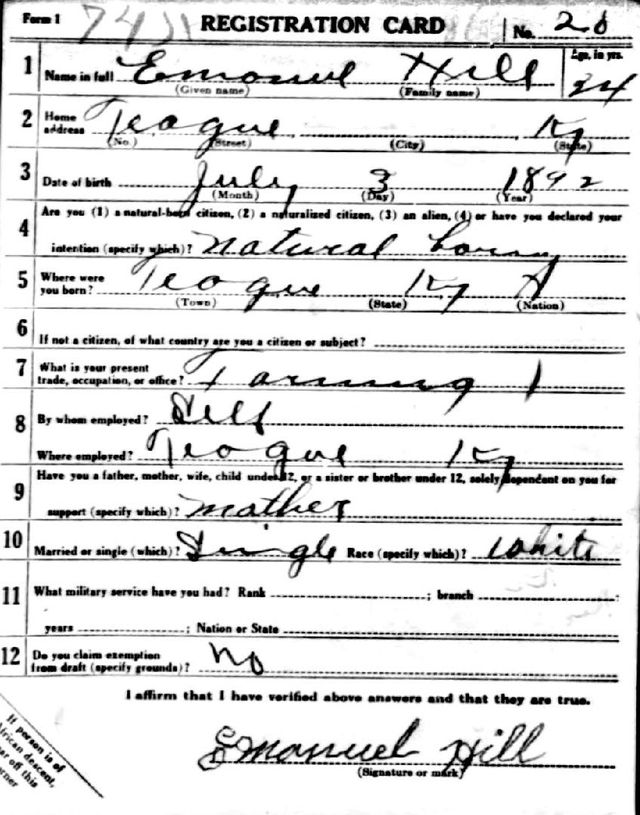 Form 1 REGISTRATION CARD No. 28
1 Name in full Emanuel Hill Age, in yrs. 24
(Given name) (Family name)
2 Home address Teague Ky
(No.) (Street) (City) (State)
3 Date of birth July 3 1892
(Month) (Day) (Year)
4 Are you (1) a natural-born citizen, (2) a naturalized citizen, (3) an alien, (4) or have you declared your
intention (specify which)? natural born
5 Where were you born? Teague Ky
(Town) (State) (Nation)
6 If not a citizen, of what country are you a citizen or subject?
7 What is your present trade, occupation, or office? Farming
8 By whom employed? Self
Where employed? Teague Ky
9 Have you a father, mother, wife, child under 12, or a sister or brother under 12, solely dependent on you for
support (specify which)? mother
10 Married or single (which)? Single Race (specify which)? White
11 What military service have you had? Rank ; branch
years ; Nation or State
12 Do you claim exemption from draft (specify grounds)? No
I affirm that I have verified above answers and that they are true.
Emanuel Hill
(Signature or mark)
If person is of
African descent,
off this
corner